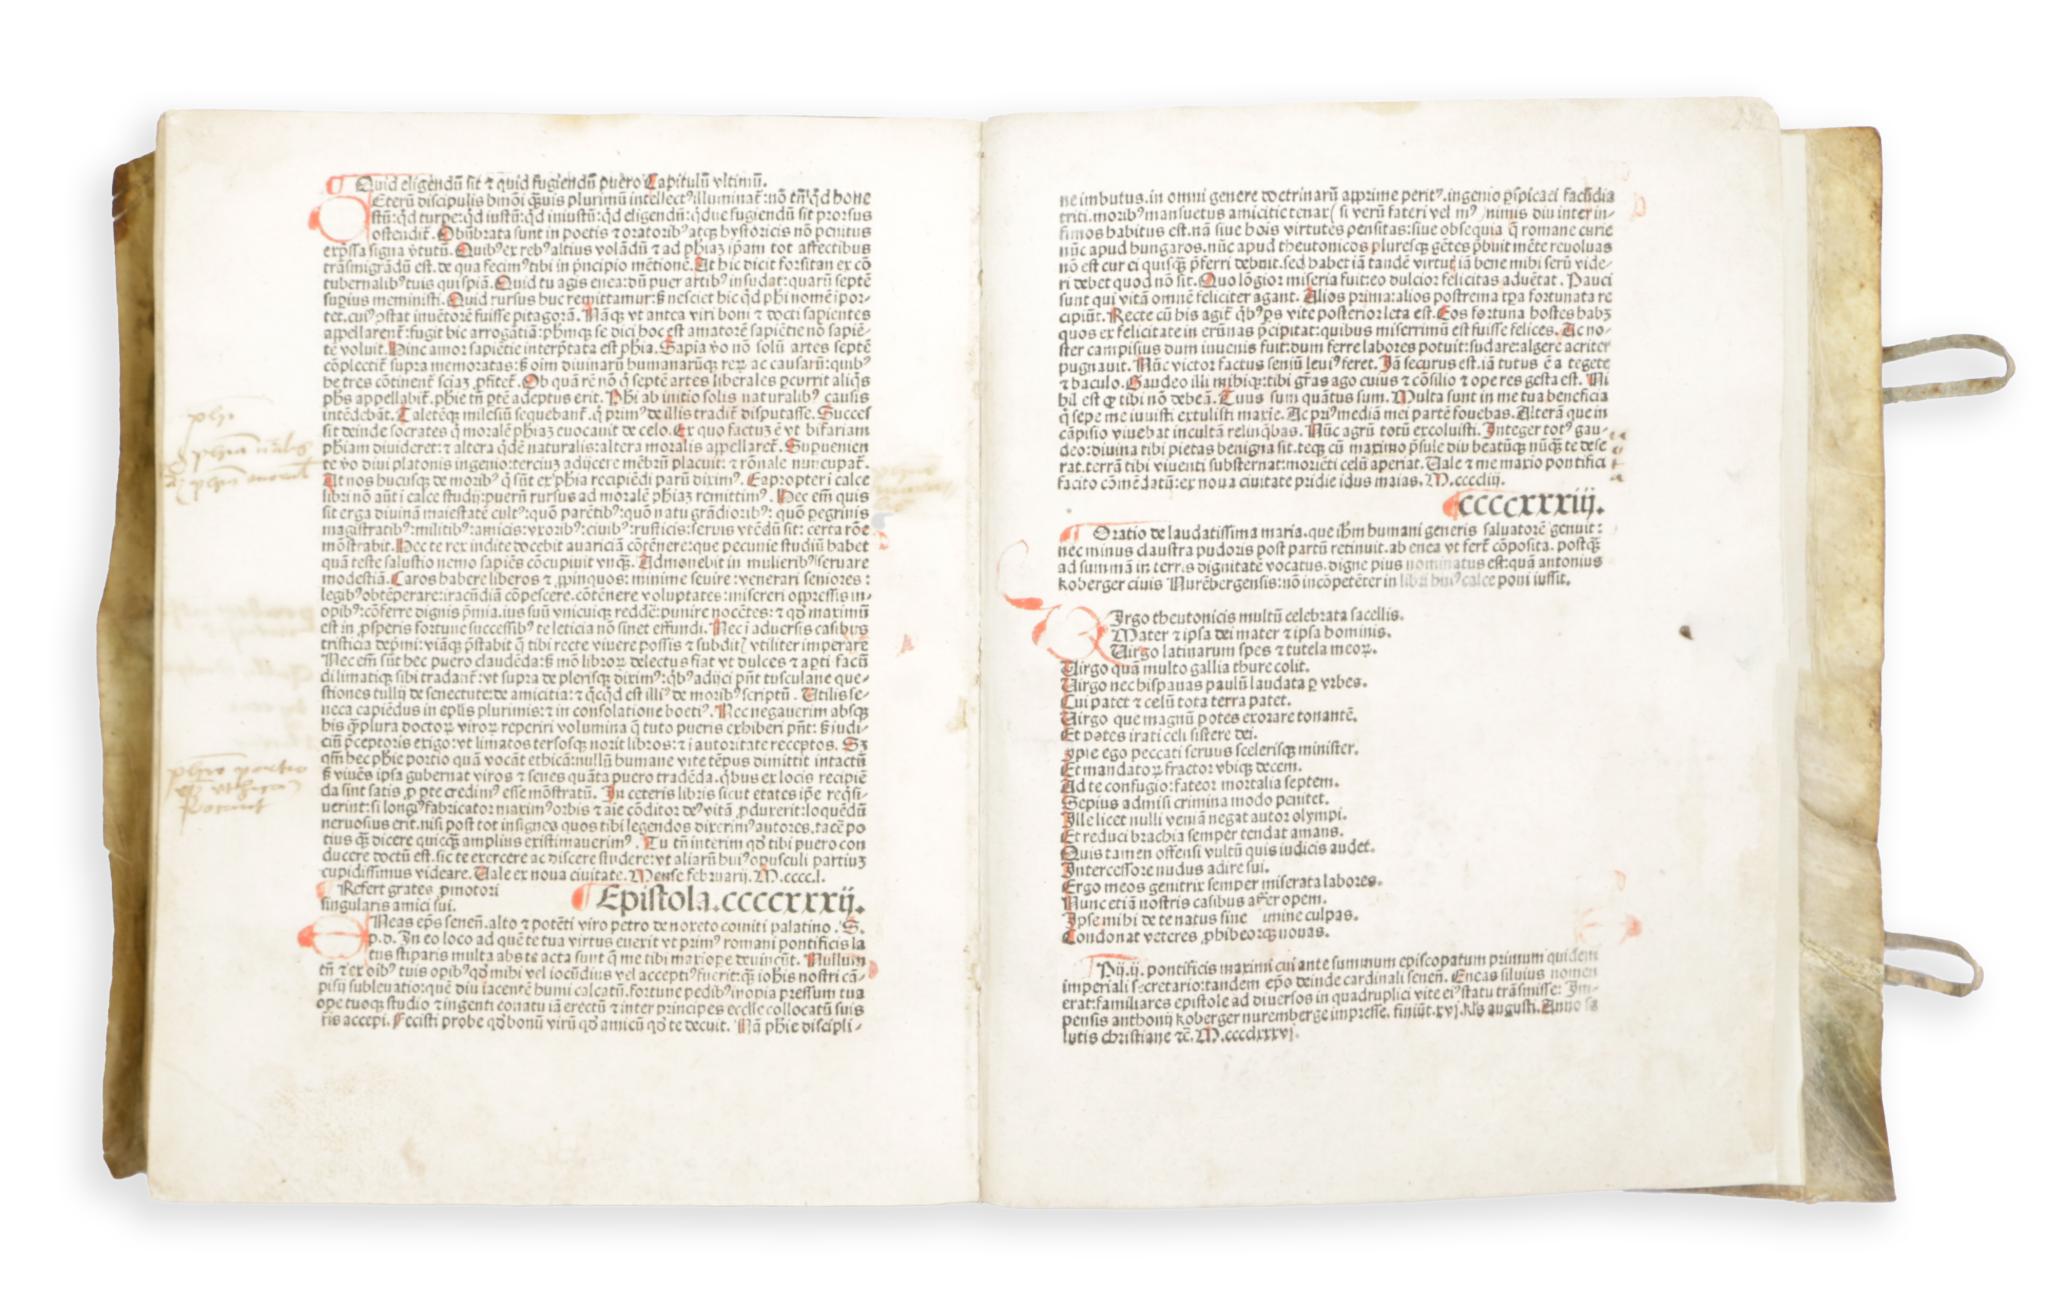 Quid eligendũ sit ⁊ quid fugiendũ puero Capitulũ vltimũ.
Eterũ discipulis hmõi q̃uis plurimũ intellectꝰ illuminat᷑: nõ tñ qd hone
stũ: qd turpe: qd iustũ: qd iniustũ: qd eligendũ: qdue fugiendũ sit prorsus
ostendit᷑. Obũbrata sunt in poetis ⁊ oratoribꝰ atqꝫ hystoricis nõ penitus
exp̃ssa signa v̾tutũ. Quibꝰ ex rebꝰ altius volãdũ ⁊ ad ph̃iaꝫ ip̃am tot affectibus
trãsmigrãdũ est. de qua fecimꝰ tibi in p̃ncipio mẽtionẽ. At hic dicit forsitan ex cõ
tubernalibꝰ tuis quispiã. Quid tu agis enea: dũ puer artibꝰ insudat: quarũ septẽ
supius meministi. Quid rursus huc remittamur: s̃ nesciet hic qd ph̃i nomẽ ipor-
tet. cuiꝰ ostat inuẽtorẽ fuisse pitagorã. Nãqꝫ vt antea viri boni ⁊ docti sapientes
appellarent᷑: fugit hic arrogãtiã: ph̃mqꝫ se dici hoc est amatorẽ sapiẽtie nõ sapiẽ-
tẽ voluit. Hinc amor sapiẽtie interp̃tata est ph̃ia. Sapia v̾o nõ solũ artes septẽ
cõplectit᷑ supra memoratas: s̃ oĩm diuinarũ humanarũqꝫ reꝝ ac causarũ: quibꝰ
he tres cõtinent᷑ sciaꝫ ꝓfitet᷑. Ob quã rẽ nõ q̃ septẽ artes liberales ꝑcurrit aliq̃s
ph̃s appellabit᷑. ph̃ie tñ ꝑtẽ adeptus erit. Ph̃i ab initio solis naturalibꝰ causis
intẽdebãt. Taletẽqꝫ milesiũ sequebant᷑. q̃ primꝰ de illis tradit᷑ disputasse. Succes
sit deinde socrates q̃ moralẽ ph̃iaꝫ euocauit de celo. Ex quo factuꝫ ẽ vt bifariam
ph̃iam diuideret᷑: ⁊ altera q̃dẽ naturalis: altera moralis appellaret᷑. Superuenien
te v̾o diui platonis ingenio: terciuꝫ adijcere mẽbrũ placuit: ⁊ rõnale nuncupat᷑.
At nos hucusqꝫ de moribꝰ q̃ sũt ex ph̃ia recipiẽdi parũ diximꝰ. Eapropter i calce
libri nõ aũt i calce studij: puerũ rursus ad moralẽ ph̃iaꝫ remittimꝰ. Hec em̃ quis
sit erga diuinã maiestatẽ cultꝰ: quõ parẽtibꝰ: quõ natu grãdioribꝰ: quõ pegrinis
magistratibꝰ: militibꝰ: amicis: vxoribꝰ: ciuibꝰ: rusticis: seruis vtẽdũ sit: certa rõe
mõstrabit. Hec te rex indite docebit auariciã cõtẽnere: que pecunie studiũ habet
quã teste salustio nemo sapiẽs cõcupiuit vnqꝫ. Admonebit in mulieribꝰ seruare
modestiã. Caros habere liberos ⁊ ꝓpinquos: minime seuire: venerari seniores:
legibꝰ obtẽperare: iracũdiã cõpescere. cõtẽnere voluptates: misereri opp̃ssis in-
opibꝰ: cõferre dignis p̃mia. ius suũ vnicuiqꝫ reddẽ: punire nocẽtes: ⁊ qd maximũ
est in ꝓsperis fortune successibꝰ te leticia nõ sinet effundi. Nec i aduersis casibus
tristicia dep̃mi: viãqꝫ p̃stabit q̃ tibi recte viuere possis ⁊ subditꝭ vtiliter imperare
Nec em̃ sũt hec puero claudẽda: s̃ mõ libroꝝ delectus fiat vt dulces ⁊ apti facũ
di limatiqꝫ sibi tradant᷑: vt supra de plerisqꝫ diximꝰ: q̃bꝰ adijci pñt tusculane que-
stiones tullij de senectute: de amicitia: ⁊ q̃cqd est illiꝰ de moribꝰ scriptũ. Utilis se-
neca capiẽdus in ep̃lis plurimis: ⁊ in consolatione boetiꝰ. Nec negauerim absqꝫ
his q̃plura doctoꝝ viroꝝ reperiri volumina q̃ tuto pueris exhiberi pñt: s̃ iudi-
ciũ p̃ceptoris exigo: vt limatos tersosqꝫ norit libros: ⁊ i autoritate receptos. Sꝫ
qm̃ hec ph̃ie portio quã vocãt ethicã: nullũ humane vite tẽpus dimittit intactũ
s̃ viuẽs ipsa gubernat viros ⁊ senes quãta puero tradẽda. q̃bus ex locis recipiẽ
da sint satis ꝓ ꝑte credimꝰ esse mõstratũ. In ceteris libris sicut etates ip̃e req̃si-
uerint: si longꝰ fabricator maximꝰ orbis ⁊ aĩe cõditor deꝰ vitã ꝓduxerit: loquẽdũ
neruosius erit. nisi post tot insignes quos tibi legendos dixerimꝰ autores. tacẽ po
tius q̃ dicere quicqꝫ amplius existimauerimꝰ. Tu tñ interim qd tibi puero con
ducere doctũ est. sic te exercere ac discere studere: vt aliarũ huiꝰ opusculi partiuꝫ
cupidissimus videare. Uale ex noua ciuitate. Mense februarij. M.cccc.l.
Refert grates ꝓmotori
singularis amici sui.
Epistola.ccccxxxij.
Neas ep̃s senen̄. alto ⁊ potẽti viro petro de noxeto comiti palatino. S.
p.d. In eo loco ad quẽ te tua virtus euexit vt primꝰ romani pontificis la
tus stiparis multa abs te acta sunt q̃ me tibi maxiope deuincũt. Nullum
tñ ⁊ ex oĩbꝰ tuis opibꝰ qd mihi vel iocũdius vel acceptiꝰ fuerit: q̃ ioh̃is nostri cã-
pisij subleuatio: quẽ diu iacentẽ humi calcatũ. fortune pedibꝰ inopia pressum tua
ope tuoqꝫ studio ⁊ ingenti conatu iã erectũ ⁊ inter principes eccl̃ie collocatũ suis
ris accepi. Fecisti probe qd bonũ virũ qd amicũ qd te decuit. Nã ph̃ie discipli-
ne imbutus. in omni genere doctrinarũ apprime peritꝰ. ingenio p̃spicaci facũdia
triti. moribꝰ mansuetus amicitie tenax (si verũ fateri vel mꝰ) nimis diu inter in-
fimos habitus est. nã siue hoĩs virtutẽs pensitas: siue obsequia q̃ romane curie
nũc apud hungaros. nũc apud theutonicos pluresqꝫ gẽtes p̃buit mẽte reuoluas
nõ est cur ei quisqꝫ p̃ferri debuit. sed habet iã tandẽ virtus iã bene mihi serũ vide-
ri debet quod nõ sit. Quo lõgior miseria fuit: eo dulcior felicitas aduẽtat. Pauci
sunt qui vitã omnẽ feliciter agant. Alios prima: alios postrema tp̃a fortunata re
cipiũt. Recte cũ his agit᷑ q̃bꝰ ꝑs vite posterior leta est. Eos fortuna hostes habꝫ
quos ex felicitate in erũnas p̃cipitat: quibus miserrimũ est fuisse felices. Ac no-
ster campisius dum iuuenis fuit: dum ferre labores potuit: sudare: algere acriter
pugnauit. Nũc victor factus seniũ leuiꝰ feret. Iã securus est. iã tutus ẽ a tegete
⁊ baculo. Gaudeo illi mihiqꝫ: tibi gr̃as ago cuius ⁊ cõsilio ⁊ ope res gesta est. Ni
hil est qꝫ tibi nõ debeã. Tuus sum quãtus sum. Multa sunt in me tua beneficia
q̃ sepe me iuuisti extulisti maxie. Ac priꝰ mediã mei partẽ fouebas. Alterã que in
cãpisio viuebat incultã relinq̃bas. Nũc agrũ totũ excoluisti. Integer totꝰ gau-
deo: diuina tibi pietas benigna sit. teqꝫ cũ maximo p̃sule diu beatũqꝫ nũqꝫ te dese
rat. terrã tibi viuenti substernat: moriẽti celũ aperiat. Uale ⁊ me maxio pontifici
facito cõmẽdatũ: ex noua ciuitate pridie idus maias. M.ccccliij.
ccccxxxiij.
Oratio de laudatissima maria. que ihm̃ humani generis saluatorẽ genuit:
nec minus claustra pudoris post partũ retinuit. ab enea vt fert᷑ cõposita. postqꝫ
ad summã in terris dignitatẽ vocatus. digne pius nominatus est: quã antonius
koberger ciuis Nurẽbergensis: nõ incõpetẽter in libri huiꝰ calce poni iussit.
Irgo theutonicis multũ celebrata sacellis.
Mater ⁊ ipsa dei mater ⁊ ipsa hominis.
Uirgo latinarum spes ⁊ tutela meoꝝ.
Uirgo quã multo gallia thure colit.
Uirgo nec hispanas paulũ laudata ꝑ vrbes.
Cui patet ⁊ celũ tota terra patet.
Uirgo que magnũ potes exorare tonantẽ.
Et potes irati celi sistere dei.
Ppie ego peccati seruus scelerisqꝫ minister.
Et mandatoꝝ fractor vbiqꝫ decem.
Ad te confugio: fateor mortalia septem.
Sepius admisi crimina modo penitet.
Ille licet nulli veniã negat autor olympi.
Et reduci brachia semper tendat amans.
Quis tamen offensi vultũ quis iudicis audet.
Intercessore nudus adire sui.
Ergo meos genitrix semper miserata labores.
Nunc etiã nostris casibus affer opem.
Ipse mihi de te natus sine imine culpas.
Condonat veteres ꝓhibeorqꝫ nouas.
Pij. ij. pontificis maximi cui ante summum episcopatum primum quidem
imperiali secretario: tandem ep̃o deinde cardinali senen̄. Eneas siluius nomen
erat: familiares epistole ad diuersos in quadruplici vite eiꝰ statu trãsmisse: Im-
pensis anthonij koberger nuremberge impresse. finiũt. xvj. kl̃s augusti. Anno sa
lutis christiane ⁊c̃. M.cccclxxxvj.